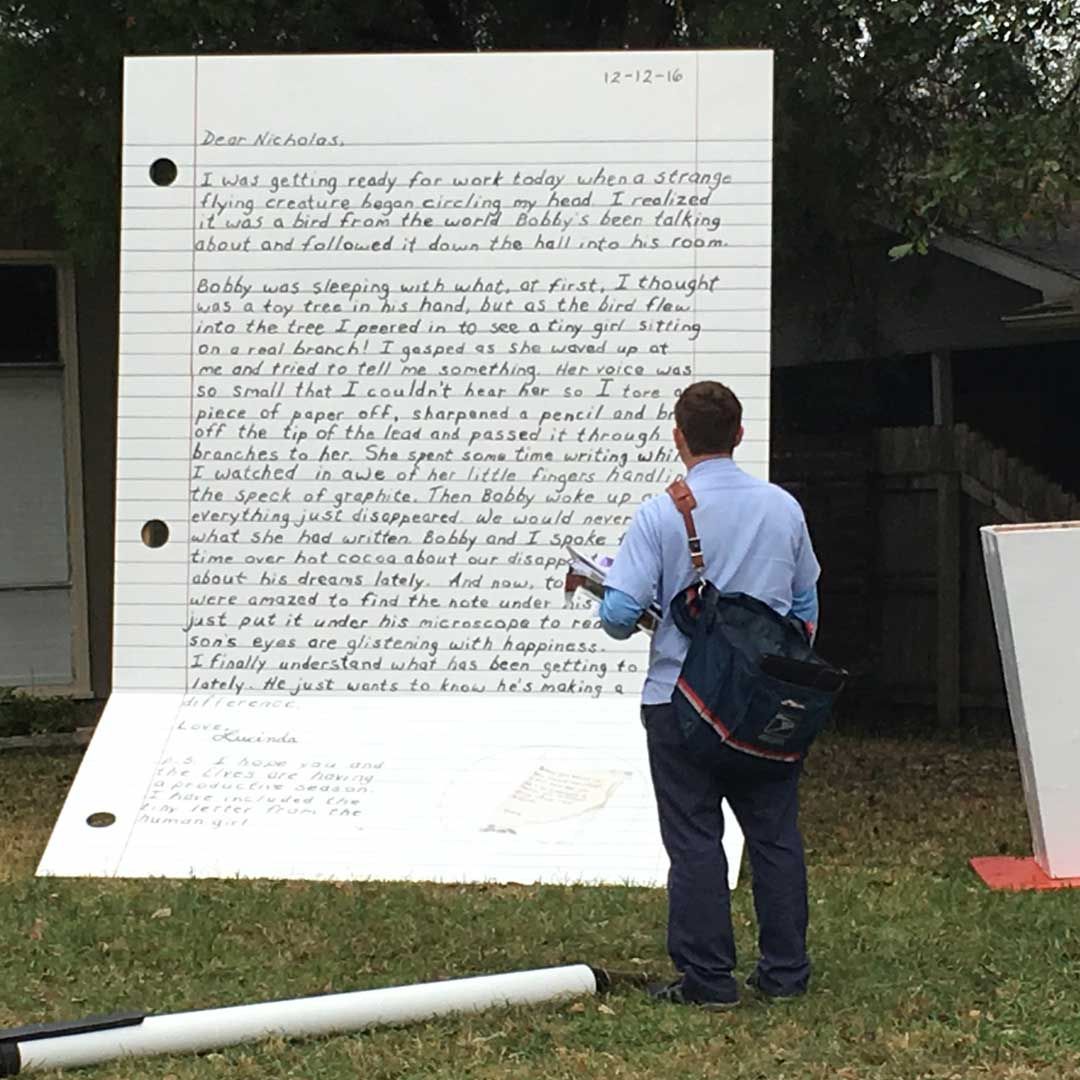 12-12-16
Dear Nicholas,
I was getting ready for work today when a strange
flying creature began circling my head. I realized
it was a bird from the world Bobby's been talking
about and followed it down the hall into his room.
Bobby was sleeping with what, at first, I thought
was a toy tree in his hand, but as the bird flew
into the tree I peered in to see a tiny girl sitting
on a real branch! I gasped as she waved up at
me and tried to tell me something. Her voice was
so small that I couldn't hear her so I tore a
piece of paper off, sharpened a pencil and br
off the tip of the lead and passed it through
branches to her. She spent some time writing whi
I watched in awe of her little fingers handli
the speck of graphite. Then Bobby woke up a
everything just disappeared. We would never
what she had written. Bobby and I spoke
time over hot cocoa about our disapp
about his dreams lately. And now, to
were amazed to find the note under his
just put it under his microscope to rea
son's eyes are glistening with happiness.
I finally understand what has been getting to
lately. He just wants to know he's making a
difference.
Love,
Lucinda
P.S. I hope you and
the Elves are having
a productive season.
I have included the
tiny letter from the
human girl.